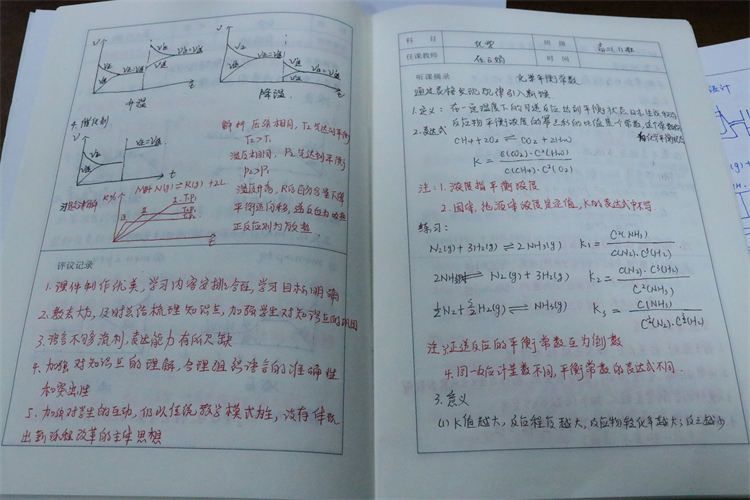 V
V正
V逆
V正=V逆
V正=V逆
t
升温
V
V正=V逆
V正=V逆
降温
4. 催化剂
V正=V逆
t
解析 压强相同，T2先达到平衡
T2>T1
温度相同，P2先达到平衡
P2>P1
温度升高，R的百分含量下降
平衡逆向移，逆反应为吸热
正反应则为放热
N(g)⇌R(g)+2L
评议记录
1. 课件制作优美，学习内容安排合理，学习目标明确
2. 教态大方，及时总结梳理知识点，加强学生对知识点的巩固
3. 语言不够流利，表达能力有所欠缺
4. 加强对知识点的理解，合理组织语言的准确性
和突出性
5. 加强对学生的互动，仍以传统教学模式为主，没有体现
出新课程改革的主体思想
科 目
化学
班 级
任课教师
时 间
听课摘录
化学平衡常数
通过表格发现规律引入新课
1. 定义：在一定温度下的可逆反应达到平衡状态
反应物平衡浓度的幂之积的比值是个常数，这个常数
2. 表达式
CH4+2O2⇌CO2+2H2O
K = c(CO2)·C²(H2O) / c(CH4)·C²(O2)
注：1. 浓度指平衡浓度
2. 固体，纯液体浓度是定值，K的表达式中不写.
练习：
N2(g)+3H2(g)⇌2NH3(g) K1 = C²(NH3) / c(N2)·C³(H2)
2NH3⇌N2(g)+3H2(g) K2 = c(N2)·C³(H2) / C²(NH3)
½N2+3/2H2(g)⇌NH3(g) K3 = C(NH3) / C^½(N2)·C^3/2(H2)
注：3. 正逆反应的平衡常数互为倒数
4. 同一反应计量数不同，平衡常数的表达式不同.
3. 意义
(1) K值越大，反应程度越大，反应物转化率越大；反之越少